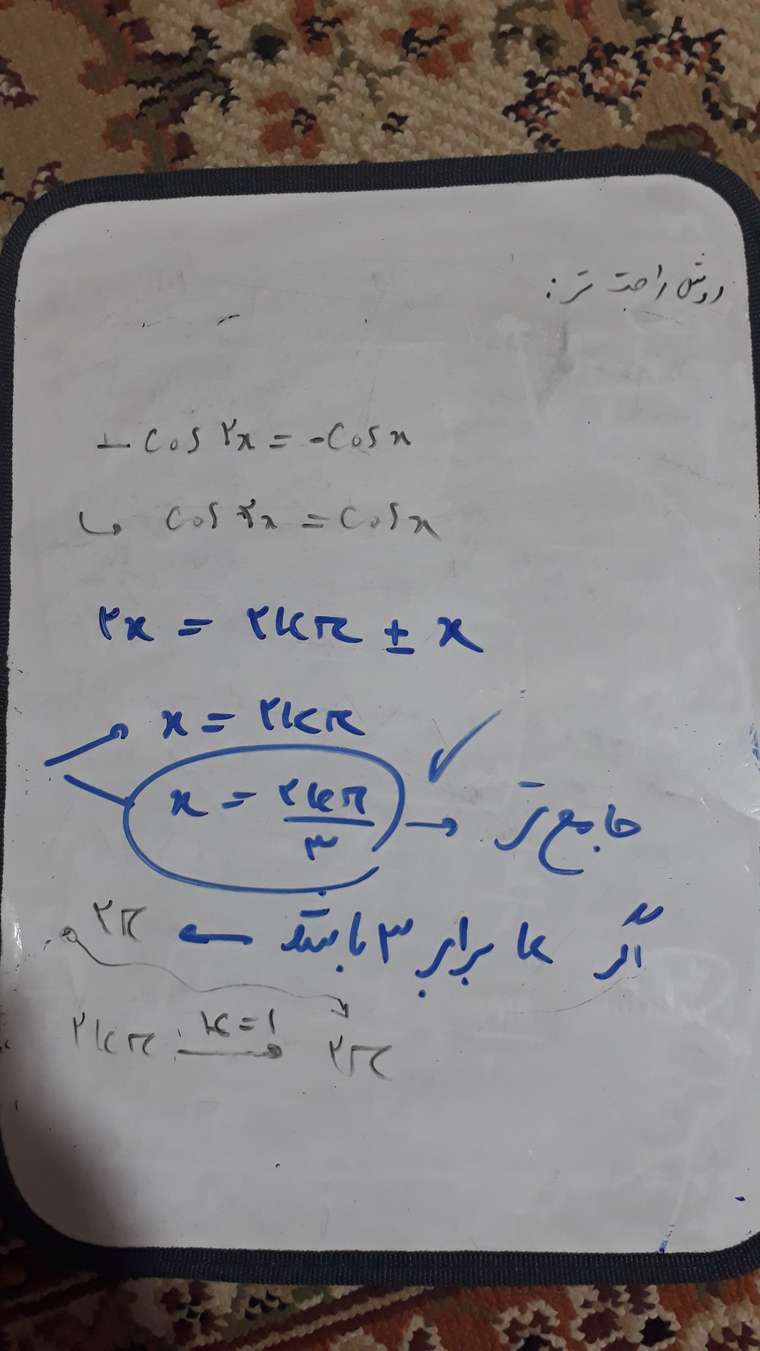 روش راحت تر:
- cos ۲x = -cos x
↳ cos ۲x = cos x
۲x = ۲kπ ± x
x = ۲kπ
x = ۲kπ/۳ → جامع تر ✓
اگر k برابر ۳ باشد ← ۲π
۲kπ k=۱ → ۲π